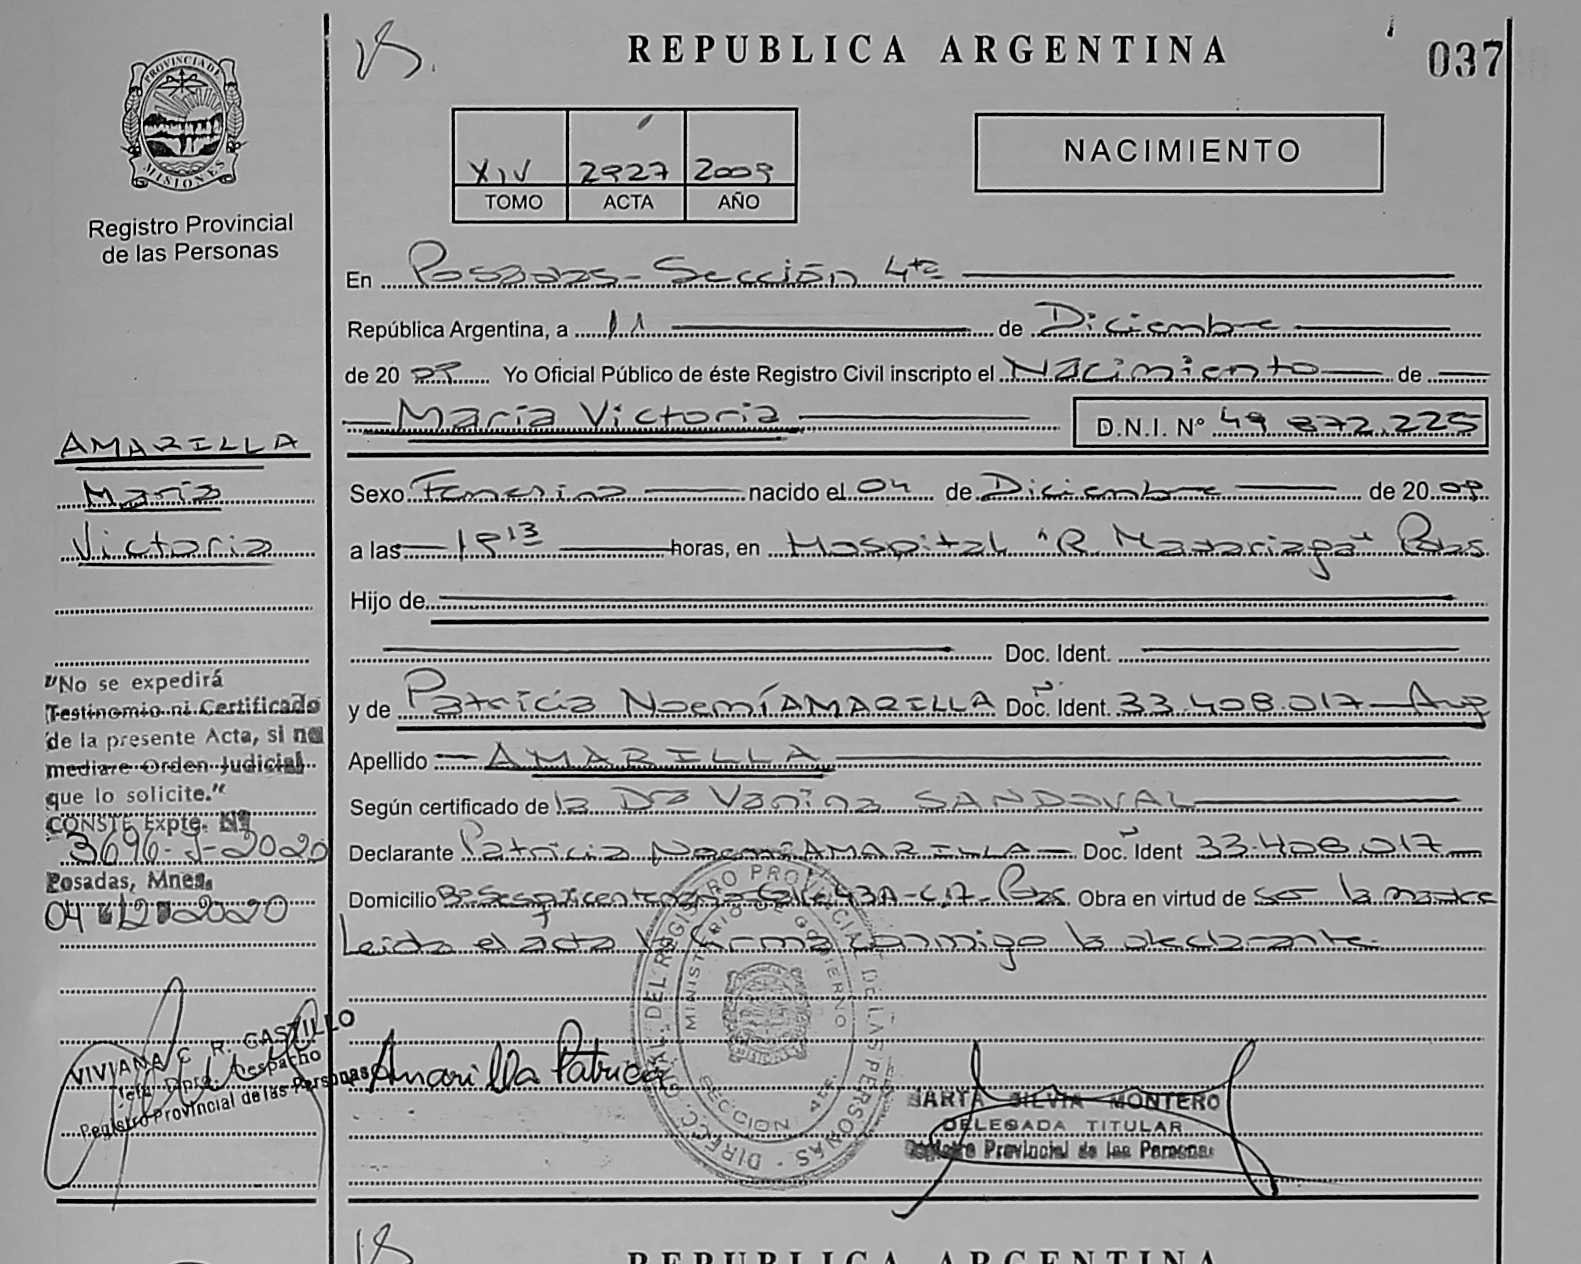 REPUBLICA ARGENTINA
037
PROVINCIA DE
MISIONES
Registro Provincial
de las Personas
XIV 2927 2009
TOMO ACTA AÑO
NACIMIENTO
En Posadas - Sección 4ta
República Argentina, a 11 de Diciembre
de 20 09 Yo Oficial Público de éste Registro Civil inscripto el Nacimiento de
María Victoria D.N.I. N° 49 872.225
AMARILLA
María
Victoria
Sexo Femenino nacido el 04 de Diciembre de 20 09
a las horas, en Hospital "R. Madariaga" Pdas.
Hijo de
Doc. Ident.
y de Patricia Noemí AMARILLA Doc. Ident. 33.408.017 - Arg
Apellido AMARILLA
Según certificado de la Dra Vanina SANDOVAL
Declarante Patricia Noemí AMARILLA Doc. Ident 33.408.017
Domicilio Bº Sesquicentenario - Calle 43A - C.17 - Pdas. Obra en virtud de ser la madre
Leida el acta la firma conmigo la declarante.
"No se expedirá
Testinomio ni Certificado
de la presente Acta, si no
mediare Orden Judicial
que lo solicite."
CONSTE Expte. Nº
3696-J-2020
Posadas, Mnes.
04 12 2020
VIVIANA C R. CASTILLO
Jefa Dpto. Despacho
Registro Provincial de las Personas
Amarilla Patricia
DIRECC. GRAL. DEL REGISTRO PROVINCIAL DE LAS PERSONAS
MINISTERIO DE GOBIERNO
SECCION 4ta.
MARTA SILVIA MONTERO
DELEGADA TITULAR
Registro Provincial de las Personas
REPUBLICA ARGENTINA